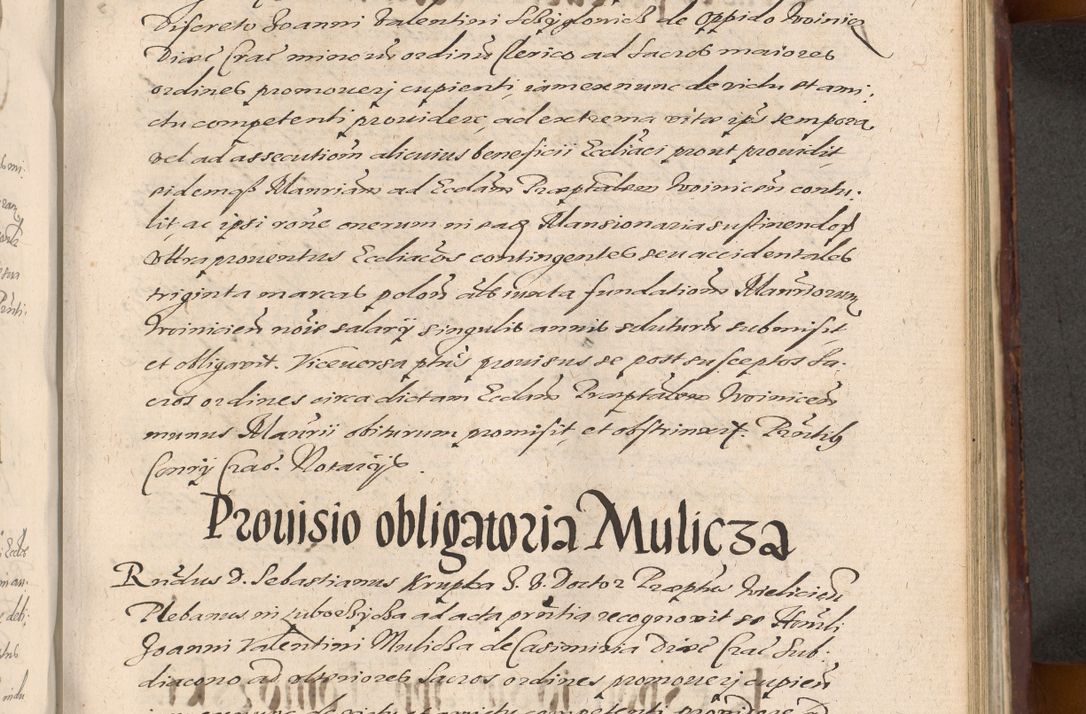 Discreto Joanni Valentini Schyglonich de Oppido Woinicz
Diæc Crac minorũ ordinũ Clerico ad Sacros maiores
ordines promouerj cupienti, iam ex nunc de victu et ami,
ctu competenti prouidere, ad extrema vitæ ipsˢ tempora,
vel ad assecutiom alicuius beneficii Eccliaci prout prouidit,
eidemqȝ Manriam ad Ecclam Præptalem Woinicen contu.
lit, ac ipsi rone onerum in ea Mansionaria sustinendoȝ
vltra prouentus Eccliacos contingentes seu accidentales
triginta marcas polon als iuxta fundationem Manriorum
Woinicien nõie salarÿ singulis annis soluturũ submisit
et obligavit. Viceversa ptus prouisus se post susceptos Sa.
cros ordines circa dictam Ecclam Præptalem Woinicen
munus Manrii obiturum promisit, et obstrinxit. Pñtibȝ
Conrÿ Crac. Notarÿs.
Prouisio obligatoria Mulicza
Rñdus D. Sebastianus Krupka S. V. Doctor Præptus Wieliciem
Plebanus in Luborzÿcka ad acta pñtia recognovit se Honli
Joanni Valentini Mulicka de Casimiria Diæc Crac Sub.
diacono ad vlteriores Sacros ordines promouerj cupien